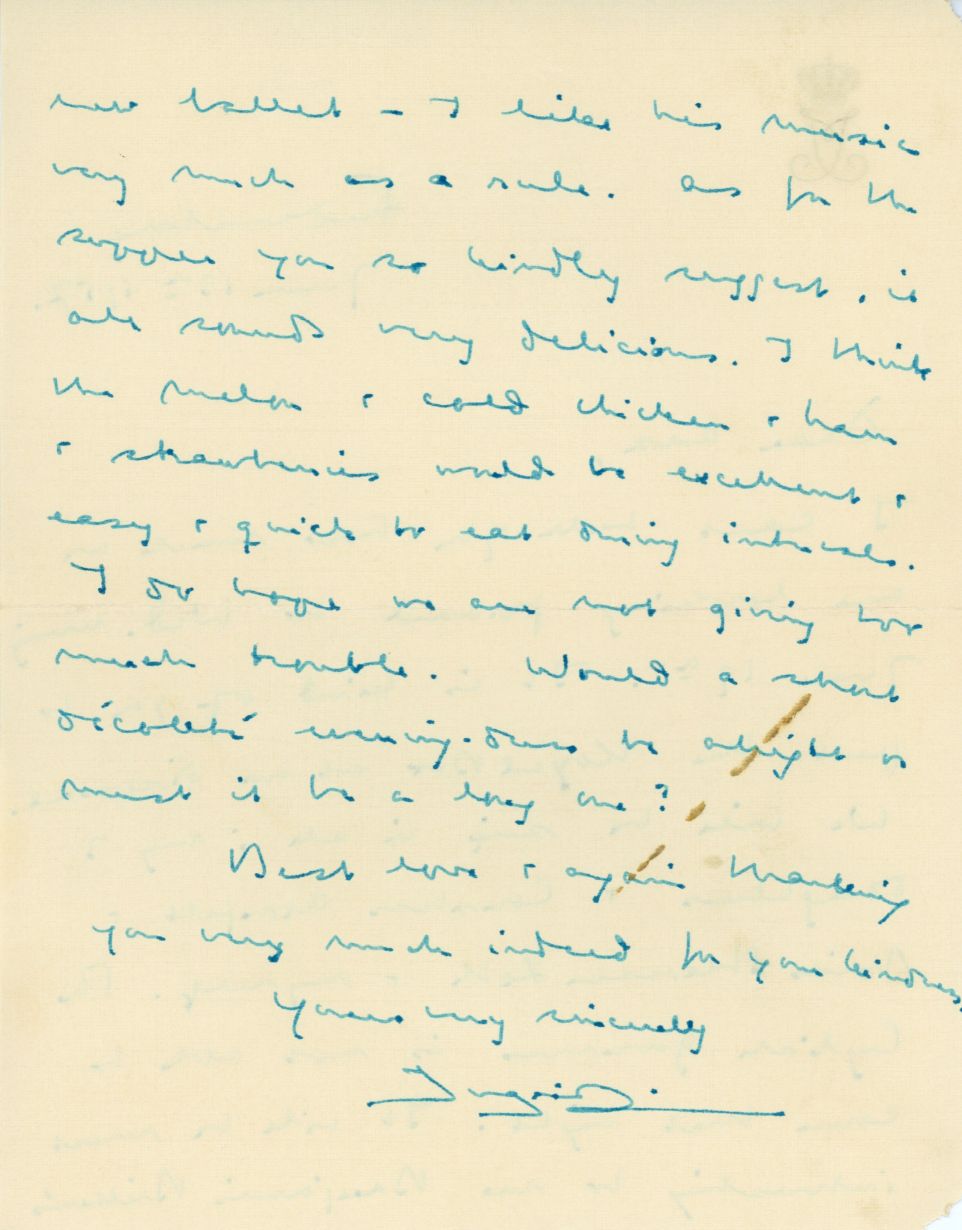 new ballet – I like his music
very much as a rule. As for the
supper you so kindly suggest, it
all sounds very delicious. I think
the melon & cold chicken & ham
& strawberries would be excellent &
easy & quick to eat during intervals.
I do hope we are not giving too
much trouble. Would a short
décoleté evening-dress be allright or
must it be a long one?
Best love & again thanking
you very much indeed for your kindness,
Yours very sincerely
Ingrid.